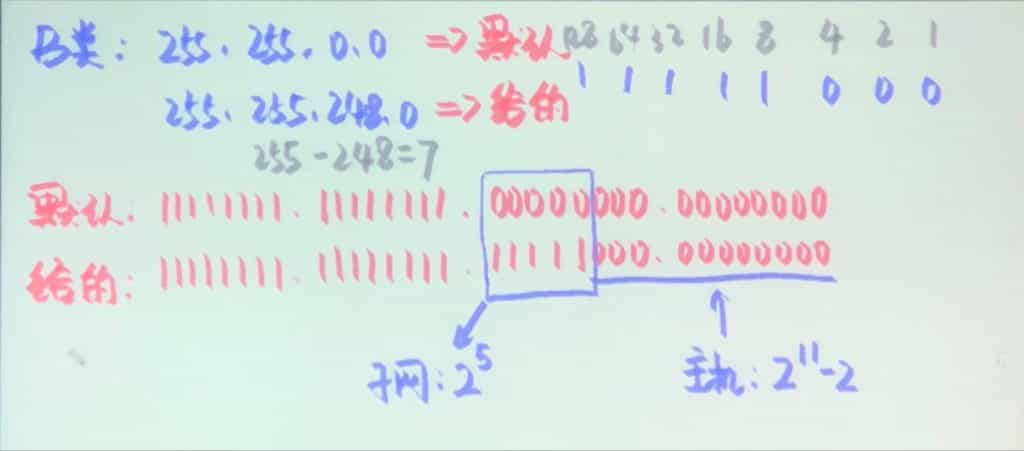 B类: 255.255.0.0 => 默认 128 64 32 16 8 4 2 1
1 1 1 1 1 0 0 0
255.255.248.0 => 给的
255-248=7
默认: 11111111.11111111.00000000.00000000
给的: 11111111.11111111.11111000.00000000
子网: 2⁵
主机: 2¹¹-2